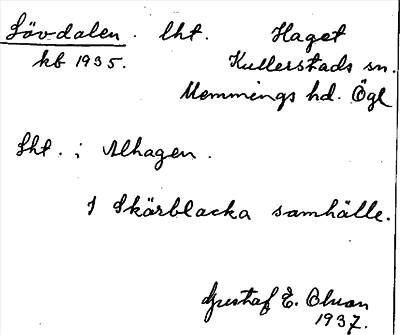 Lövdalen. lht. Haget
kb 1935. Kullerstads sn.
Memmings hd. Ögl
Lht. i Alhagen.
I Skärblacka samhälle.
Gustaf E.
1937.